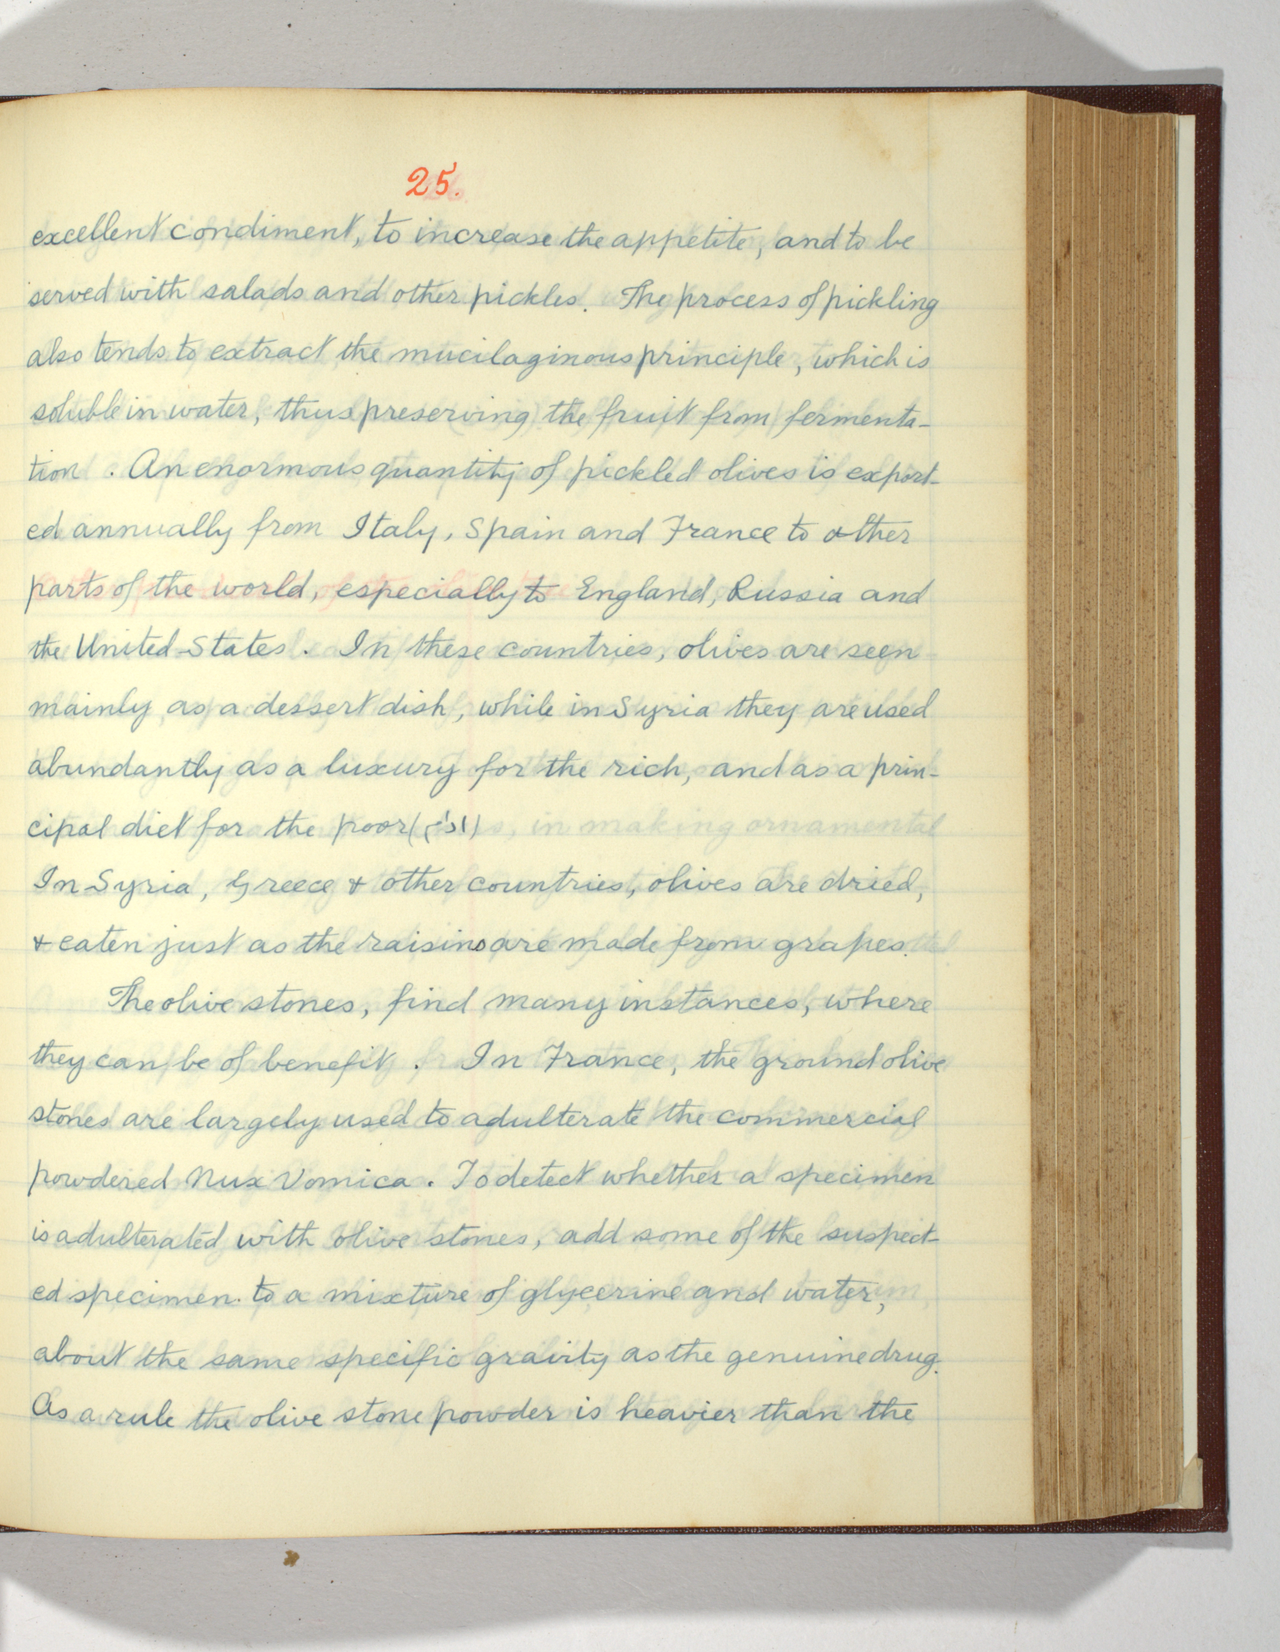 25.
excellent condiment, to increase the appetite, and to be
served with salads and other pickles. The process of pickling
also tends to extract the mucilaginous principle, which is
soluble in water, thus preserving the fruit from fermenta-
tion. An enormous quantity of pickled olives is export-
ed annually from Italy, Spain and France to other
parts of the world, especially to England, Russia and
the United States. In these countries, olives are seen
mainly as a dessert dish, while in Syria they are used
abundantly as a luxury for the rich, and as a prin-
cipal diet for the poor
In Syria, Greece & other countries, olives are dried,
& eaten just as the raisins are made from grapes.
The olive stones, find many instances, where
they can be of benefit. In France, the ground olive
stones are largely used to adulterate the commercial
powdered Nux Vomica. To detect whether a specimen
is adulterated with olive stones, add some of the suspect-
ed specimen to a mixture of glycerine and water,
about the same specific gravity as the genuine drug.
As a rule the olive stone powder is heavier than the